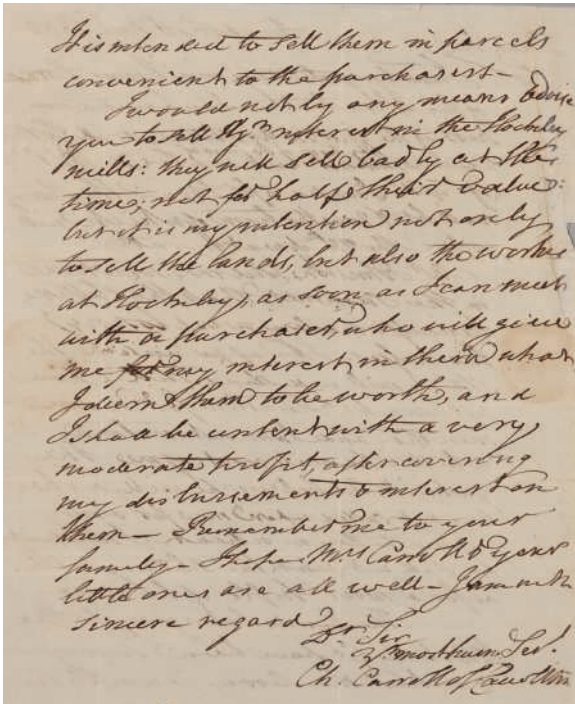 It is intended to sell them in parcels
convenient to the purchasers -
I would not by any means advise
you to sell yr interest in the Hockley
mills: they will sell badly at this
time; not for half their value:
but it is my intention not only
to sell the lands, but also the works
at Hockley, as soon as I can meet
with a purchaser, who will give
me for my interest in them what
I deem them to be worth, and
I shall be content with a very
moderate profit, after covering
my disbursements & interest on
them - Remember me to your
family - I hope Mrs Carroll & your
little ones are all well - I am with
sincere regard
Dr. Sir
Yr. most hum. Servt.
Ch. Carroll of Carrollton